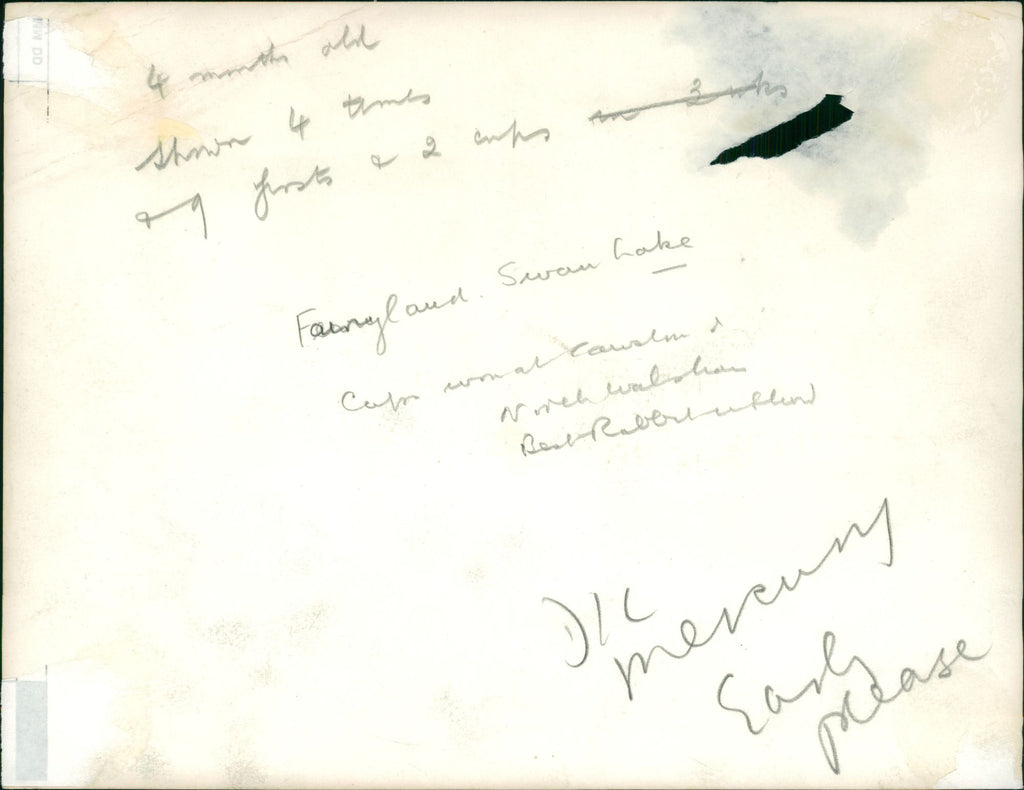 4 months old
shown 4 times
& 9 firsts & 2 cups in 3 wks
Fairyland. Swan Lake
Cups won at Cawston &
North Walsham
Best Rabbit in Show
D/C
Mercury
Early
please